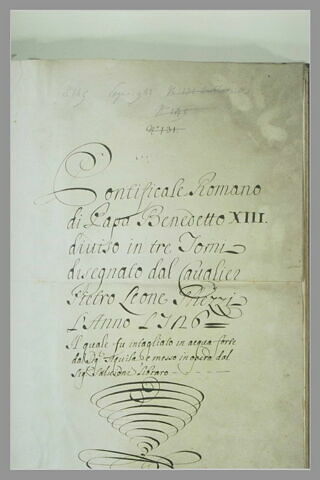 N.° 131
Pontificale Romano
di Papa Benedetto XIII.
diviso in tre Tomi
disegnato dal Cauglier
Pietro Leone Ghezzi
L'Anno 1726
Il quale fu intagliato in acqua forte
dal Sig.r Aquila e messo in opera dal
Sig.r Salvioni Libraro